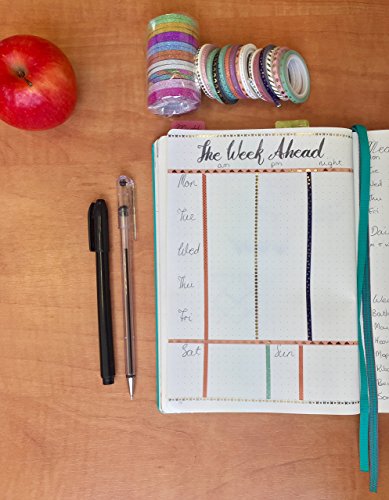 The Week Ahead
am pm night
Mon
Tue
Wed
Thu
Fri
Sat Sun